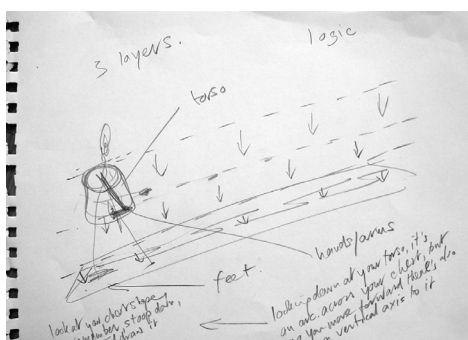 3 layers.
logic
torso
hands/arms
feet.
look at your chest shape,
stoop down,
draw it
looking down at your torso, it's
an arc across your chest, but
you move forward there's also
vertical axis to it